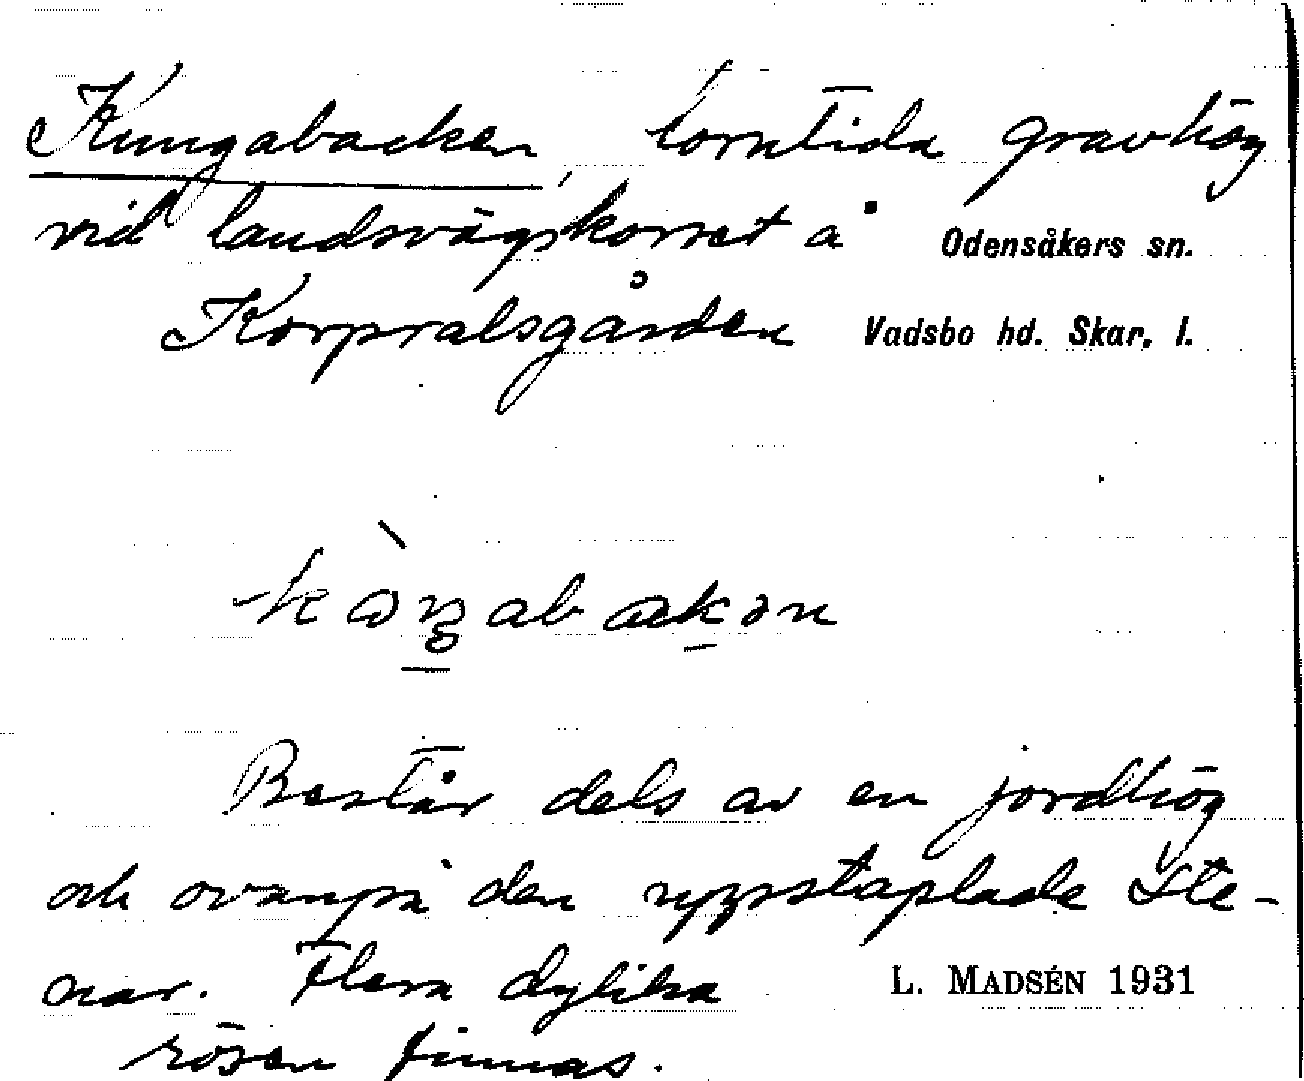 Kungabacken, forntida gravhög
vid landsvägskorset å Odensåkers sn.
Korpralsgården Vadsbo hd. Skar. l.
Består dels av en jordhög
och ovanpå den uppstaplade ste-
nar. Flera dylika L. MADSÉN 1931
rösen finnas.